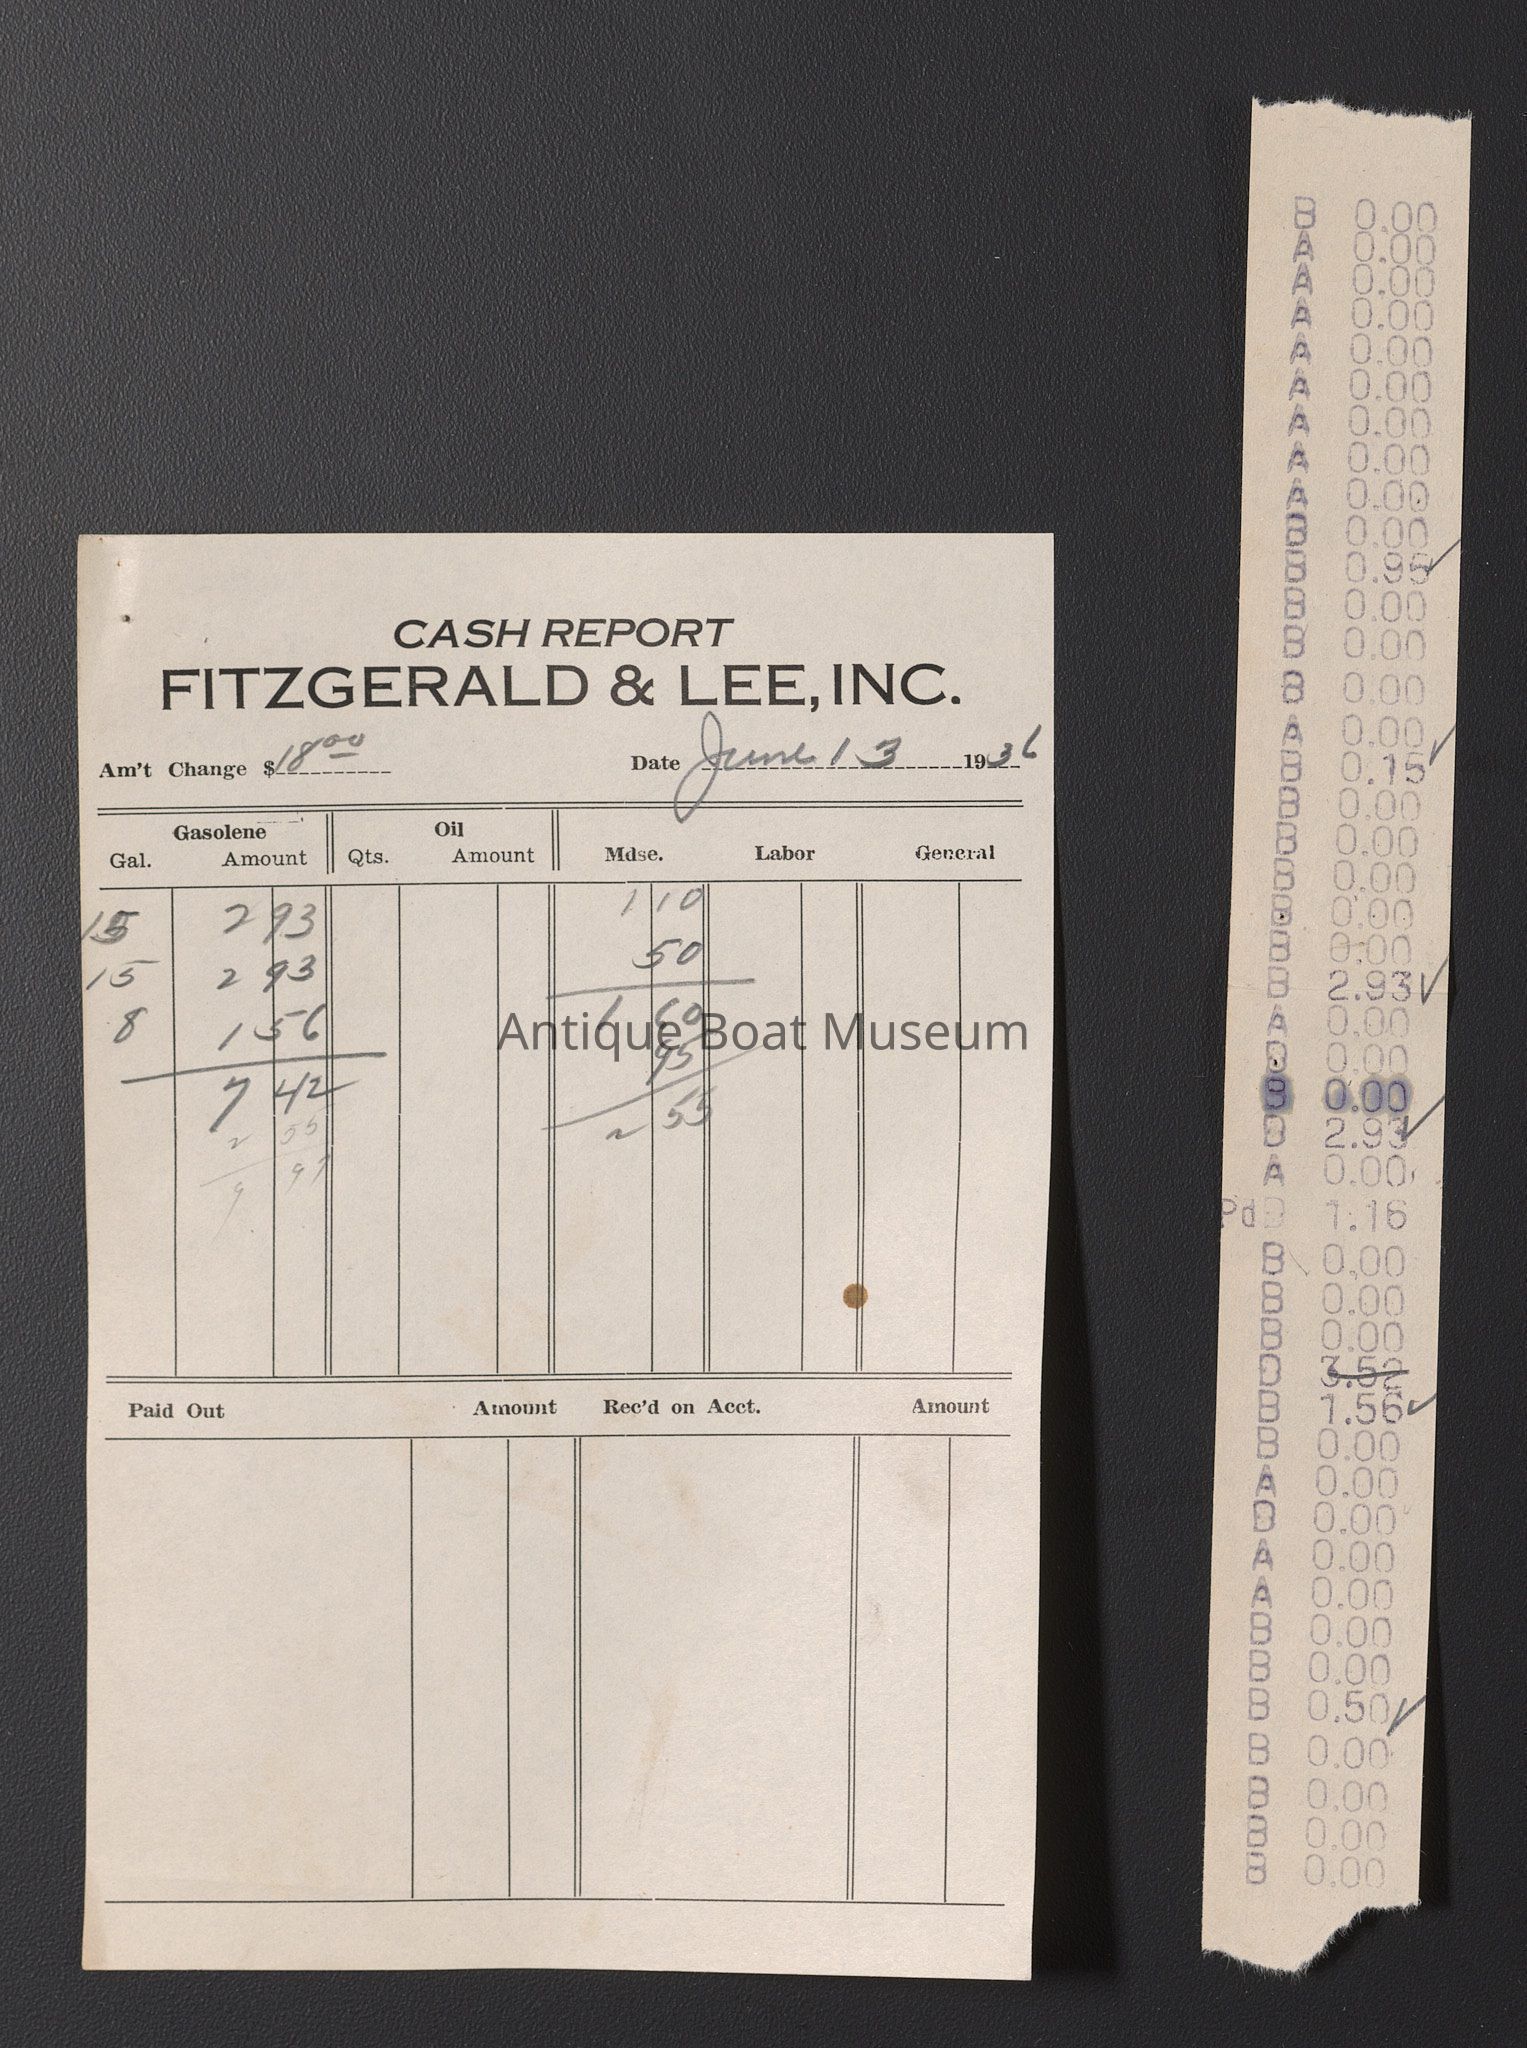 CASH REPORT
FITZGERALD & LEE, INC.
Am't Change $18.00 Date June 13 1936
Gasolene Oil
Gal. Amount Qts. Amount Mdse. Labor General
15 2 93 1 10
15 2 93 50
8 1 56 1 60
95
7 42 2 55
2 55
9 97
Antique Boat Museum
Paid Out Amount Rec'd on Acct. Amount
B 0.00
A 0.00
A 0.00
A 0.00
A 0.00
A 0.00
A 0.00
A 0.00
A 0.00
B 0.00
B 0.95 ✓
B 0.00
B 0.00
B 0.00
A 0.00
B 0.15 ✓
B 0.00
B 0.00
B 0.00
B 0.00
B 0.00
B 2.93 ✓
A 0.00
0.00
B 0.00
2.93 ✓
A 0.00
Pd 1.16
B 0.00
B 0.00
B 0.00
3.52
B 1.56 ✓
B 0.00
A 0.00
0.00
A 0.00
A 0.00
B 0.00
B 0.00
B 0.50 ✓
B 0.00
B 0.00
B 0.00
B 0.00